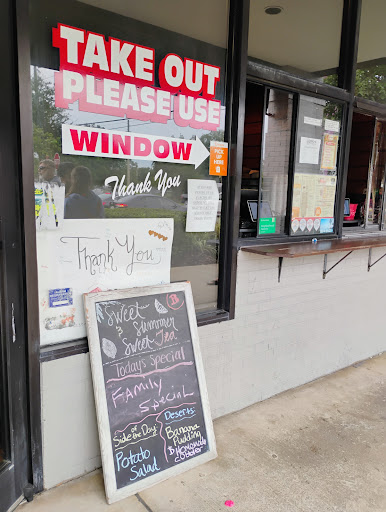 TAKE OUT
PLEASE USE
WINDOW
Thank You
PICK
UP
HERE
Thank You
Sweet
& Summer
Sweet Tea
Today's Special
Family
Special
Side of the Day
Potato
Salad
Desserts:
Banana
Pudding
& Homemade
Cobbler